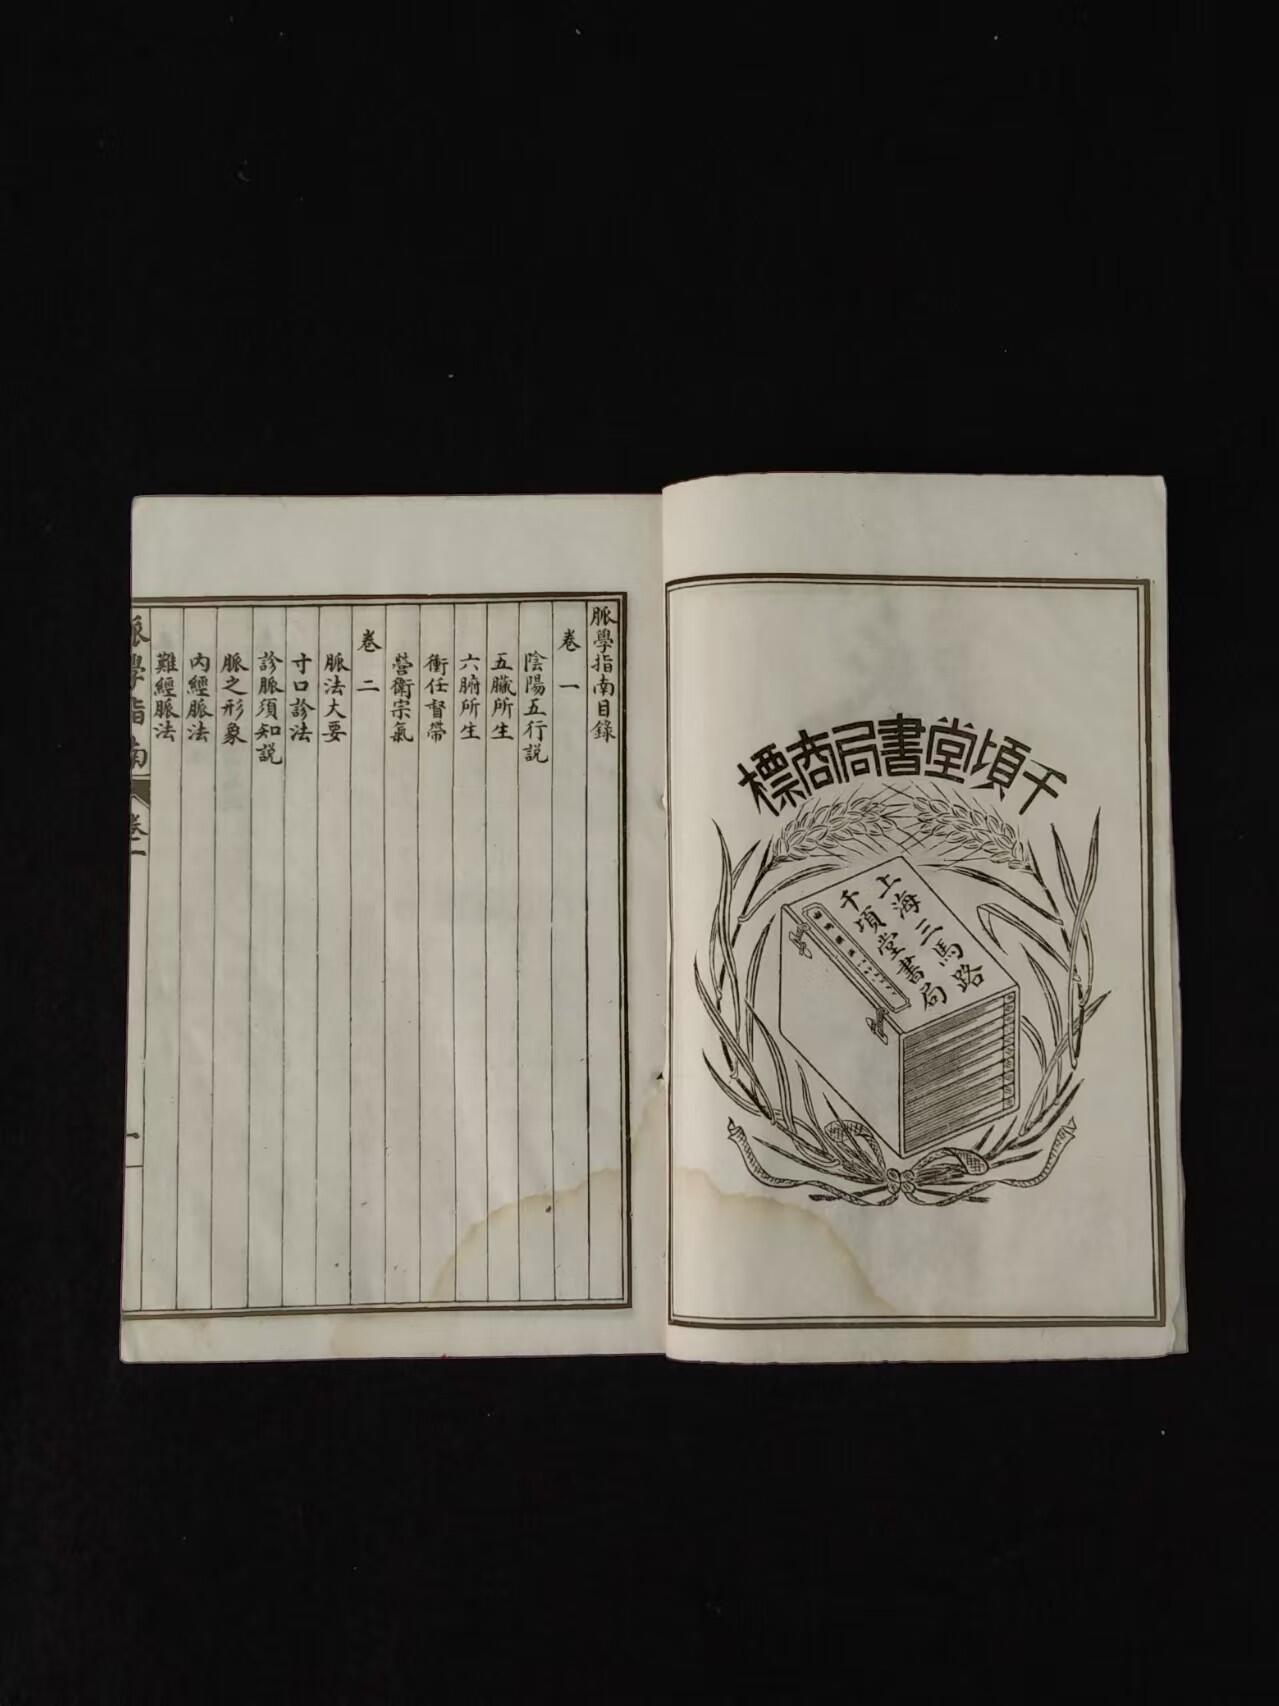 千頃堂書局商標
上海三馬路
千頃堂書局
脈學指南目錄
卷一
陰陽五行説
五臟所生
六腑所生
衝任督帶
營衛宗氣
卷二
脈法大要
寸口診法
診脈須知説
脈之形象
內經脈法
難經脈法
脈學指南
卷一
一